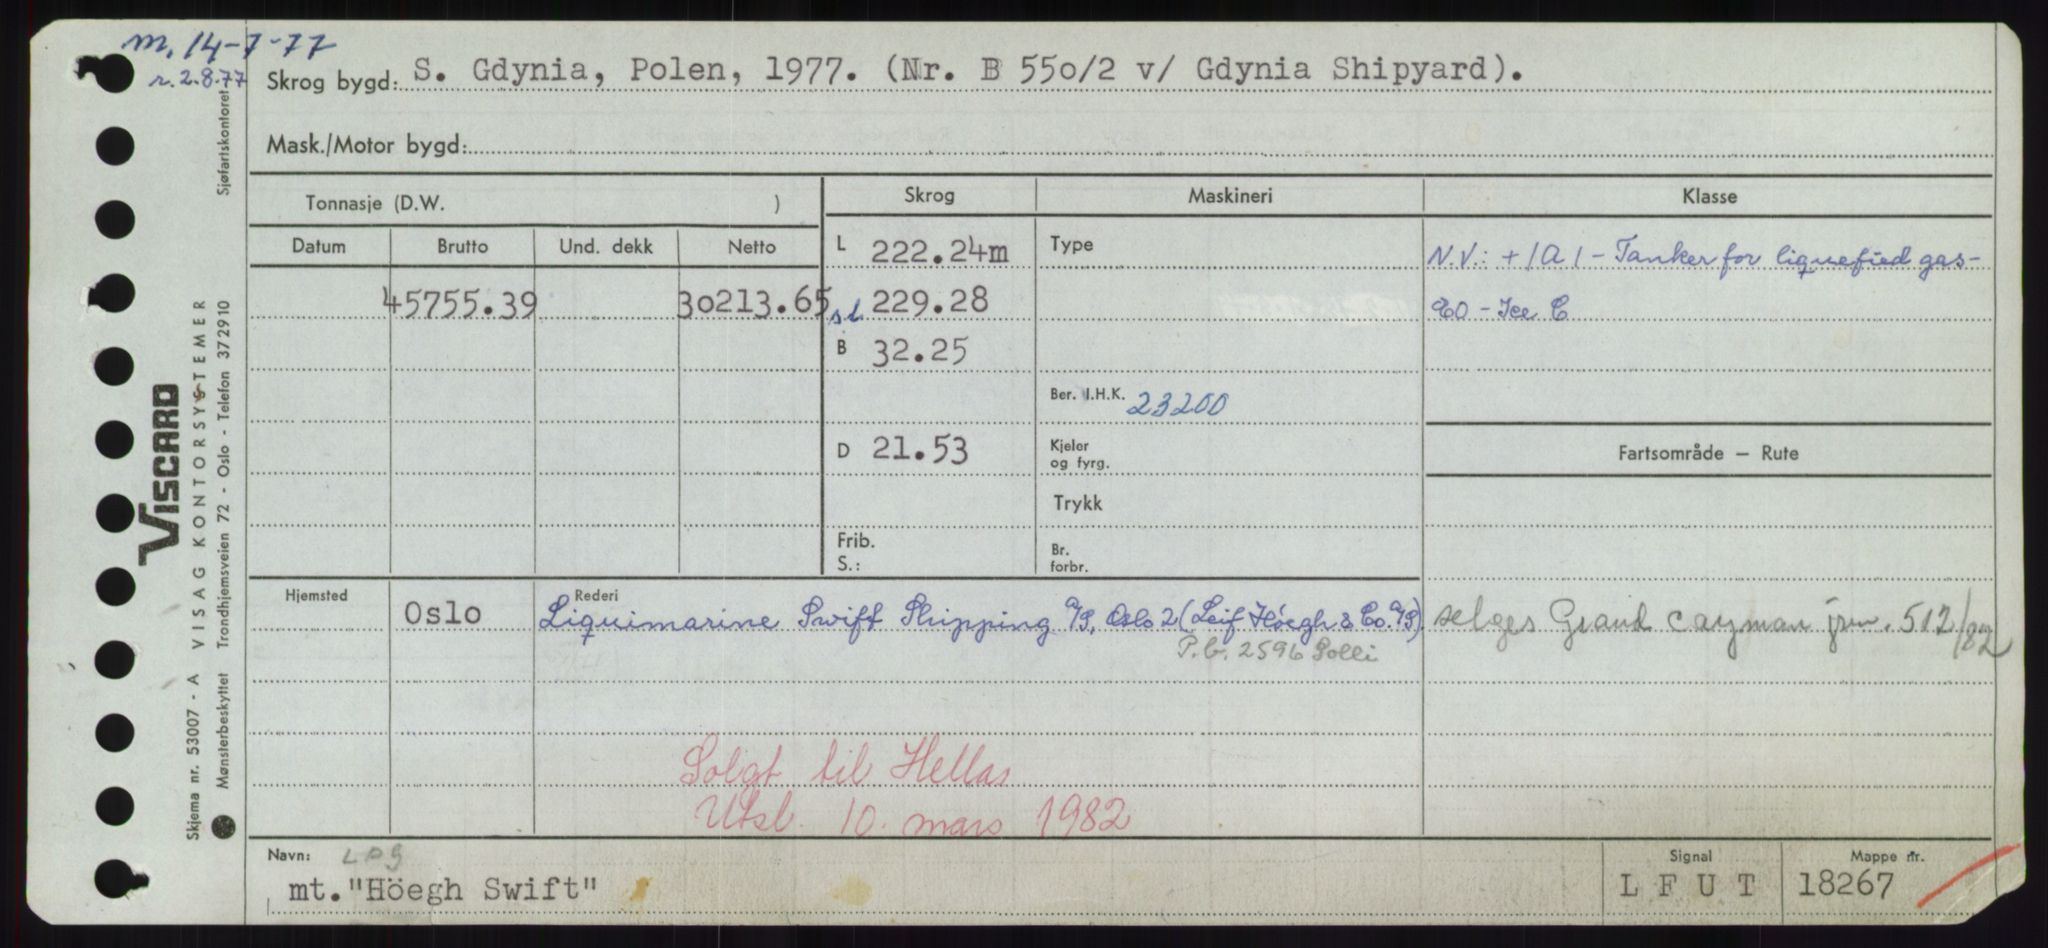 m. 14-7-77
r. 2.8.77
Skrog bygd: S. Gdynia, Polen, 1977. (Nr. B 55o/2 v/ Gdynia Shipyard).
Mask./Motor bygd:
Tonnasje (D.W. )
Skrog
Maskineri
Klasse
Datum Brutto Und. dekk Netto
45755.39 30213.65
L 222.24m
sl 229.28
B 32.25
D 21.53
Frib.
S.:
Type
Ber. I.H.K. 23200
Kjeler
og fyrg.
Trykk
Br.
forbr.
N.V.: +1A1 - Tanker for liquefied gas-
EO - Ice C
Fartsområde — Rute
Hjemsted Rederi
Oslo Liquimarine Swift Shipping A/S, Oslo 2 (Leif Höegh & Co. A/S) selges Grand Cayman 512/82
P.b. 2596 Solli
Solgt til Hellas
Utsl. 10. mars 1982
Navn: LPG
mt. "Höegh Swift"
Signal
L F U T
Mappe nr.
18267
Sjøfartskontoret
VISCARD
VISAG KONTORSYSTEMER
Skjema nr. 53007 - A
Mønsterbeskyttet Trondhjemsveien 72 - Oslo - Telefon 372910